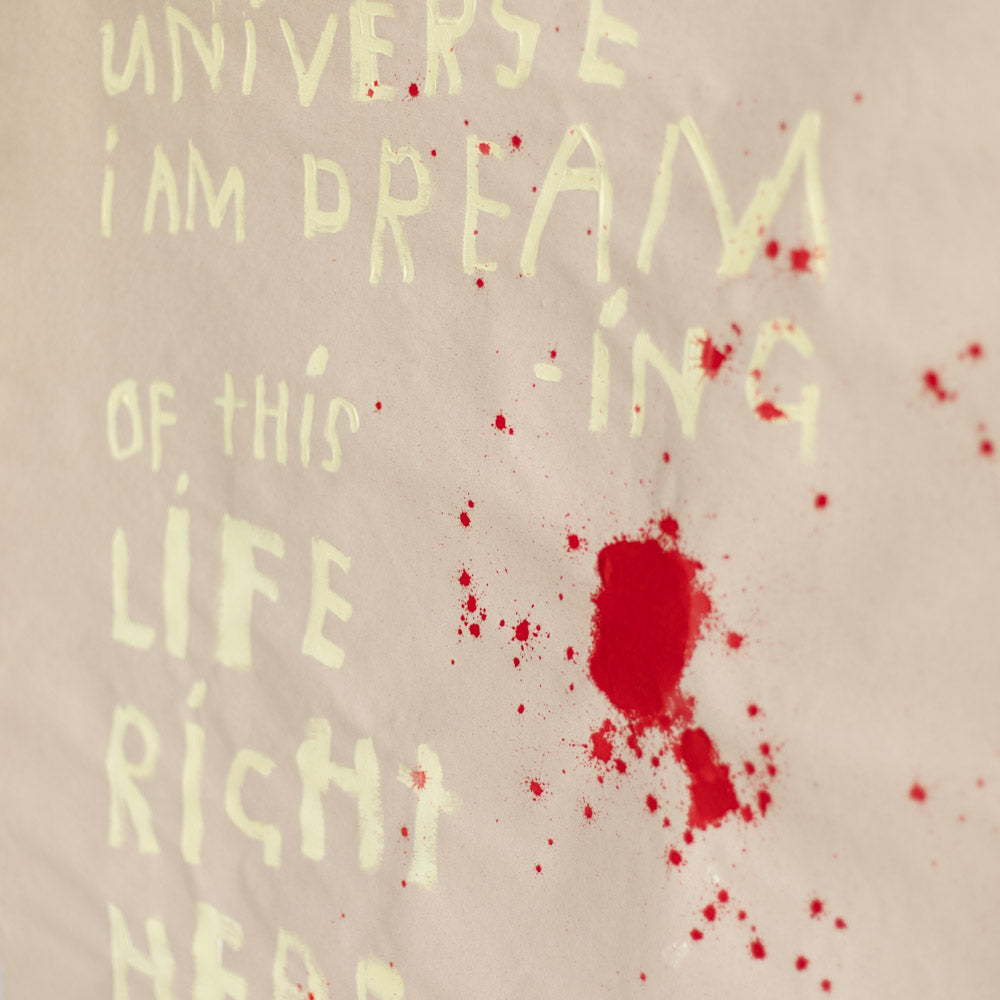 UNiVERSE
i AM DREAM
-iNG
OF tHiS
LiFE
RiGHt